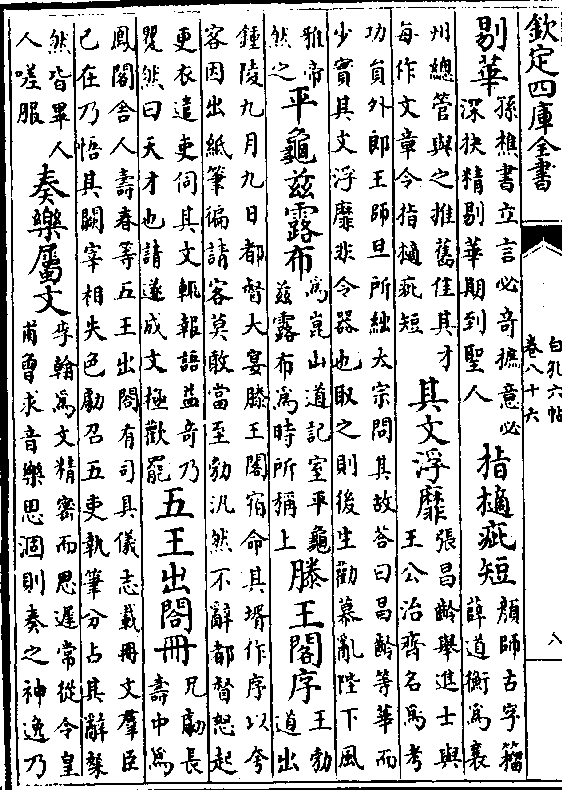 欽定四庫全書
白孔六帖
卷八十六
八
剔華
孫樵書立言必奇摭意必
深抉精剔華期到聖人
指擿疵短
顔師古字籀
薛道衡為襄
州總管與之推舊佳其才
每作文章令指擿疵短
其文浮靡
張昌齡舉進士與
王公治齊名為考
功貟外郎王師旦所絀太宗問其故答曰昌齡等華而
少實其文浮靡非令器也取之則後生勸慕亂陛下風
雅帝
然之
平龜兹露布
為崑山道記室平龜
兹露布為時所稱上
滕王閣序
王勃
道出
鍾陵九月九日都督大宴滕王閣宿命其壻作序以夸
客因出紙筆徧請客莫敢當至勃汎然不辭都督怒起
更衣遣吏伺其文輒報語益奇乃
矍然曰天才也請遂成文極歡罷
五王出閤冊
兄勮長
壽中為
鳳閣舍人壽春等五王出閤有司具儀志載冊文羣臣
已在乃悟其闕宰相失色勮召五吏執筆分占其辭粲
然皆畢人
人嗟服
奏樂屬文
李翰為文精密而思遲常從令皇
甫曾求音樂思涸則奏之神逸乃